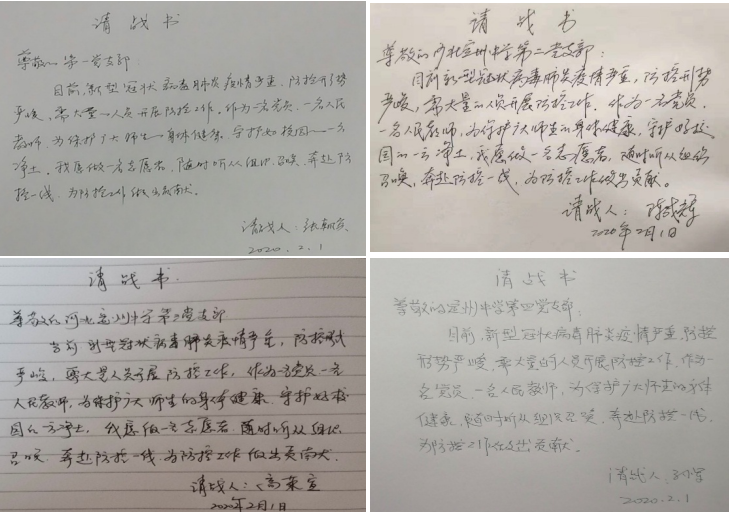 请战书
尊敬的第一党支部
目前新型冠状病毒肺炎疫情严重，防控形势
严峻，需大量人员开展防控工作。作为一名党员，一名人民
教师，为保护广大师生身体健康，守护好校园一方
净土，我愿做一名志愿者，随时听从组织召唤，奔赴防
控一线，为防控工作做出贡献。
请战人：
2020.2.1
请战书
尊敬的河北定州中学第二党支部：
目前新型冠状病毒肺炎疫情严重，防控形势
严峻，需大量的人员开展防控工作，作为一名党员，
一名人民教师，为保护广大师生的身体健康，守护好校
园的一方净土，我愿做一名志愿者，随时听从组织
召唤，奔赴防控一线，为防控工作做出贡献。
请战人：
2020年2月1日
请战书
尊敬的河北定州中学第三党支部
当前新型冠状病毒肺炎疫情严重，防控形势
严峻，需大量人员开展防控工作，作为一名党员一名
人民教师，为保护广大师生的身体健康，守护好校
园的一方净土，我愿做一名志愿者，随时听从组织
召唤，奔赴防控一线，为防控工作做出贡献。
请战人：高荣宣
2020年2月1日
请战书
尊敬的定州中学第四党支部：
目前，新型冠状病毒肺炎疫情严重，防控
形势严峻，需大量的人员开展防控工作。作为一
名党员，一名人民教师，为保护广大师生的身体
健康，随时听从组织召唤，奔赴防控一线，
为防控工作做出贡献。
请战人：
2020.2.1